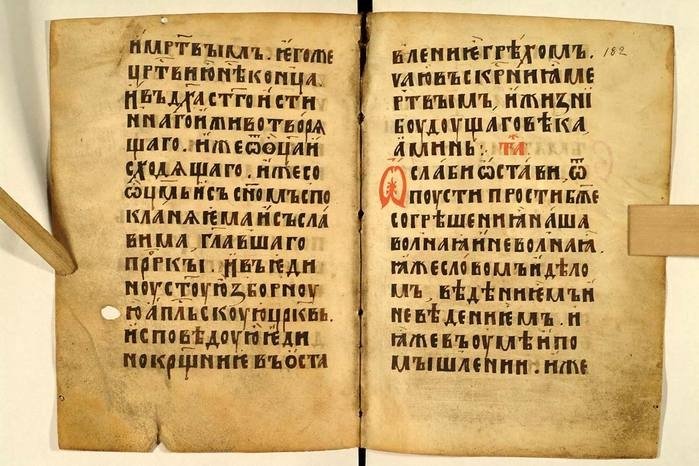 и мртвымъ . ѥгоже
цртвию нѣ конца .
и въ дха стго исти
ннаго и животворя
щаго . иже ѿ оца и
сходящаго . иже со
оцмь и съ сномъ спо
кланяѥма и съ сла
вима . главшаго
прркы . и въ ѥди
ноу стоую зборноу
ю апльскоую црквь .
исповѣдоую ѥди
но крщниѥ въ оста
влениѥ грѣхомъ . 182
чаю въскрниꙗ ме
ртвымъ , и жизні
боудоущаго вѣка
аминь :
Ослаби ѡстави , ѿ
поусти прости бже
согрѣшениꙗ наша
волнаꙗ и неволнаꙗ .
ꙗже словомъ и дѣло
мъ . вѣдѣниѥмъ и
невѣдениѥмъ . и
ꙗже въ оумѣ и по
мышлении . иже